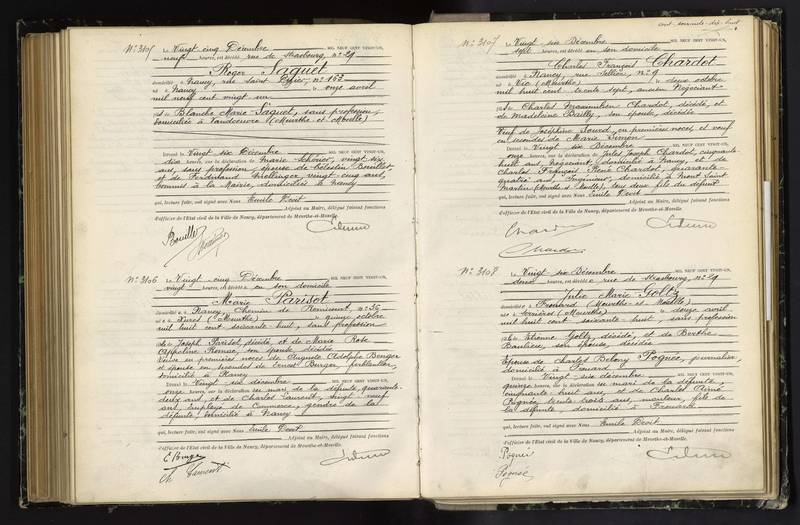 N° 3105
Le Vingt cinq Décembre MIL NEUF CENT VINGT-UN,
neuf heures, est décédé rue de Strasbourg, n° 29
Roger Saguet
domicilié à Nancy, rue Saint Dizier, n° 162
né à Nancy le onze avril
mil neuf cent vingt un
fils de Blanche Marie Saguet, sans profession,
domiciliée à Vandoeuvre (Meurthe et Moselle)
Devant le Vingt six Décembre MIL NEUF CENT VINGT-UN,
dix heures, sur la déclaration de Marie vingt six
ans, sans profession, épouse de Célestin Bouillet
et de Ferdinand vingt cinq ans,
commis à la Mairie, domiciliés à Nancy
qui, lecture faite, ont signé avec Nous Emile Devit
Adjoint au Maire, délégué faisant fonctions
d'officier de l'Etat civil de la Ville de Nancy, département de Meurthe-et-Moselle.
N° 3106
Le Vingt cinq Décembre MIL NEUF CENT VINGT-UN,
vingt heures, est décédée en son domicile
Marie Parisot
domiciliée à Nancy, Chemin de Remicourt, n° 36
née à (Meurthe) le quinze octobre
mil huit cent soixante huit, sans profession
fille de Joseph Parisot, décédé, et de Marie Rose
son épouse, décédée
Veuve en premières noces de Auguste Adolphe
et épouse en secondes de Ernest Burger, ferblantier,
domicilié à Nancy
Devant le Vingt six décembre MIL NEUF CENT VINGT-UN,
onze heures, sur la déclaration du mari de la défunte, quarante
deux ans, et de Charles Laurent, vingt neuf
ans, employé de Commerce, gendre de la
défunte, domicilié à Nancy
qui, lecture faite, ont signé avec Nous Emile Devit
Adjoint au Maire, délégué faisant fonctions
d'officier de l'Etat civil de la Ville de Nancy, département de Meurthe-et-Moselle.
cent soixante dix huit
N° 3107
Le Vingt six Décembre MIL NEUF CENT VINGT-UN,
sept heures, est décédé en son domicile
Charles François Chardot
domicilié à Nancy, rue Sellier, n° 9
né à Vic (Meurthe) le douze octobre
mil huit cent trente sept, ancien Négociant
fils de Charles Maximilien Chardot, décédé, et
de Madeleine Bailly, son épouse, décédée
Veuf de Joséphine en premières noces et veuf
en secondes de Marie Simon
Devant le Vingt six Décembre MIL NEUF CENT VINGT-UN,
onze heures, sur la déclaration de Jules Joseph Chardot, cinquante
huit ans, Négociant, domicilié à Nancy, et de
Charles François René Chardot, quarante
quatre ans, Ingénieur, domicilié à Mont Saint
Martin (Meurthe et Moselle), tous deux fils du défunt
qui, lecture faite, ont signé avec Nous Emile Devit
Adjoint au Maire, délégué faisant fonctions
d'officier de l'Etat civil de la Ville de Nancy, département de Meurthe-et-Moselle.
Chardot
Chardot
N° 3108
Le Vingt six Décembre MIL NEUF CENT VINGT-UN,
douze heures, est décédée rue de Strasbourg, n° 29
Julie Marie Goltz
domiciliée à Frouard (Meurthe et Moselle)
née à (Meurthe) le douze avril
mil huit cent soixante huit, sans profession
fille de Etienne Goltz, décédé, et de Berthe
son épouse, décédée
Epouse de Charles Pognée, journalier,
domicilié à Frouard
Devant le Vingt six décembre MIL NEUF CENT VINGT-UN,
quinze heures, sur la déclaration du mari de la défunte,
cinquante huit ans, et de Charles
Pognée, trente trois ans, mouleur, fils de
la défunte, domiciliés à Frouard
qui, lecture faite, ont signé avec Nous Emile Devit
Adjoint au Maire, délégué faisant fonctions
d'officier de l'Etat civil de la Ville de Nancy, département de Meurthe-et-Moselle.
Pognée
Pognée